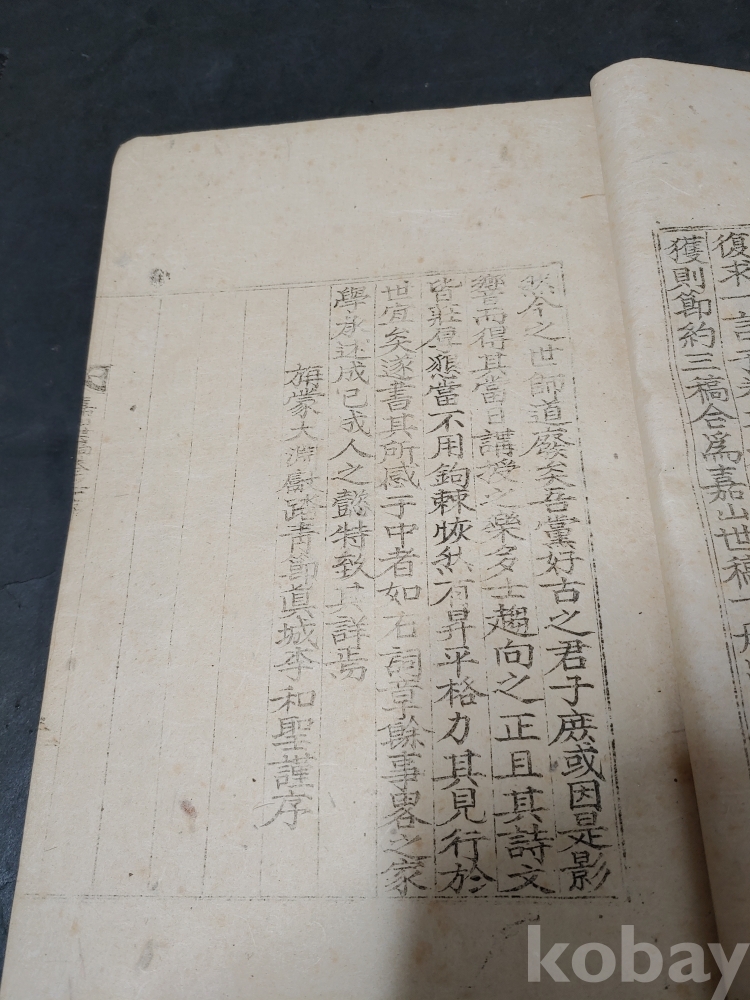 復求一
獲則節約三稿合爲嘉山世稿一
然今之世師道廢矣吾黨好古之君子庶或因是影
響而得其當日講授之樂多士趨向之正且其詩文
皆莊厚懇當不用鉤棘恢然有昇平格力其見行於
世宜矣遂書其所感于中者如右詞章餘事畧之家
學承述成已成人之懿特致其詳焉
旃蒙大淵獻踏靑節眞城李和聖謹序
kobay